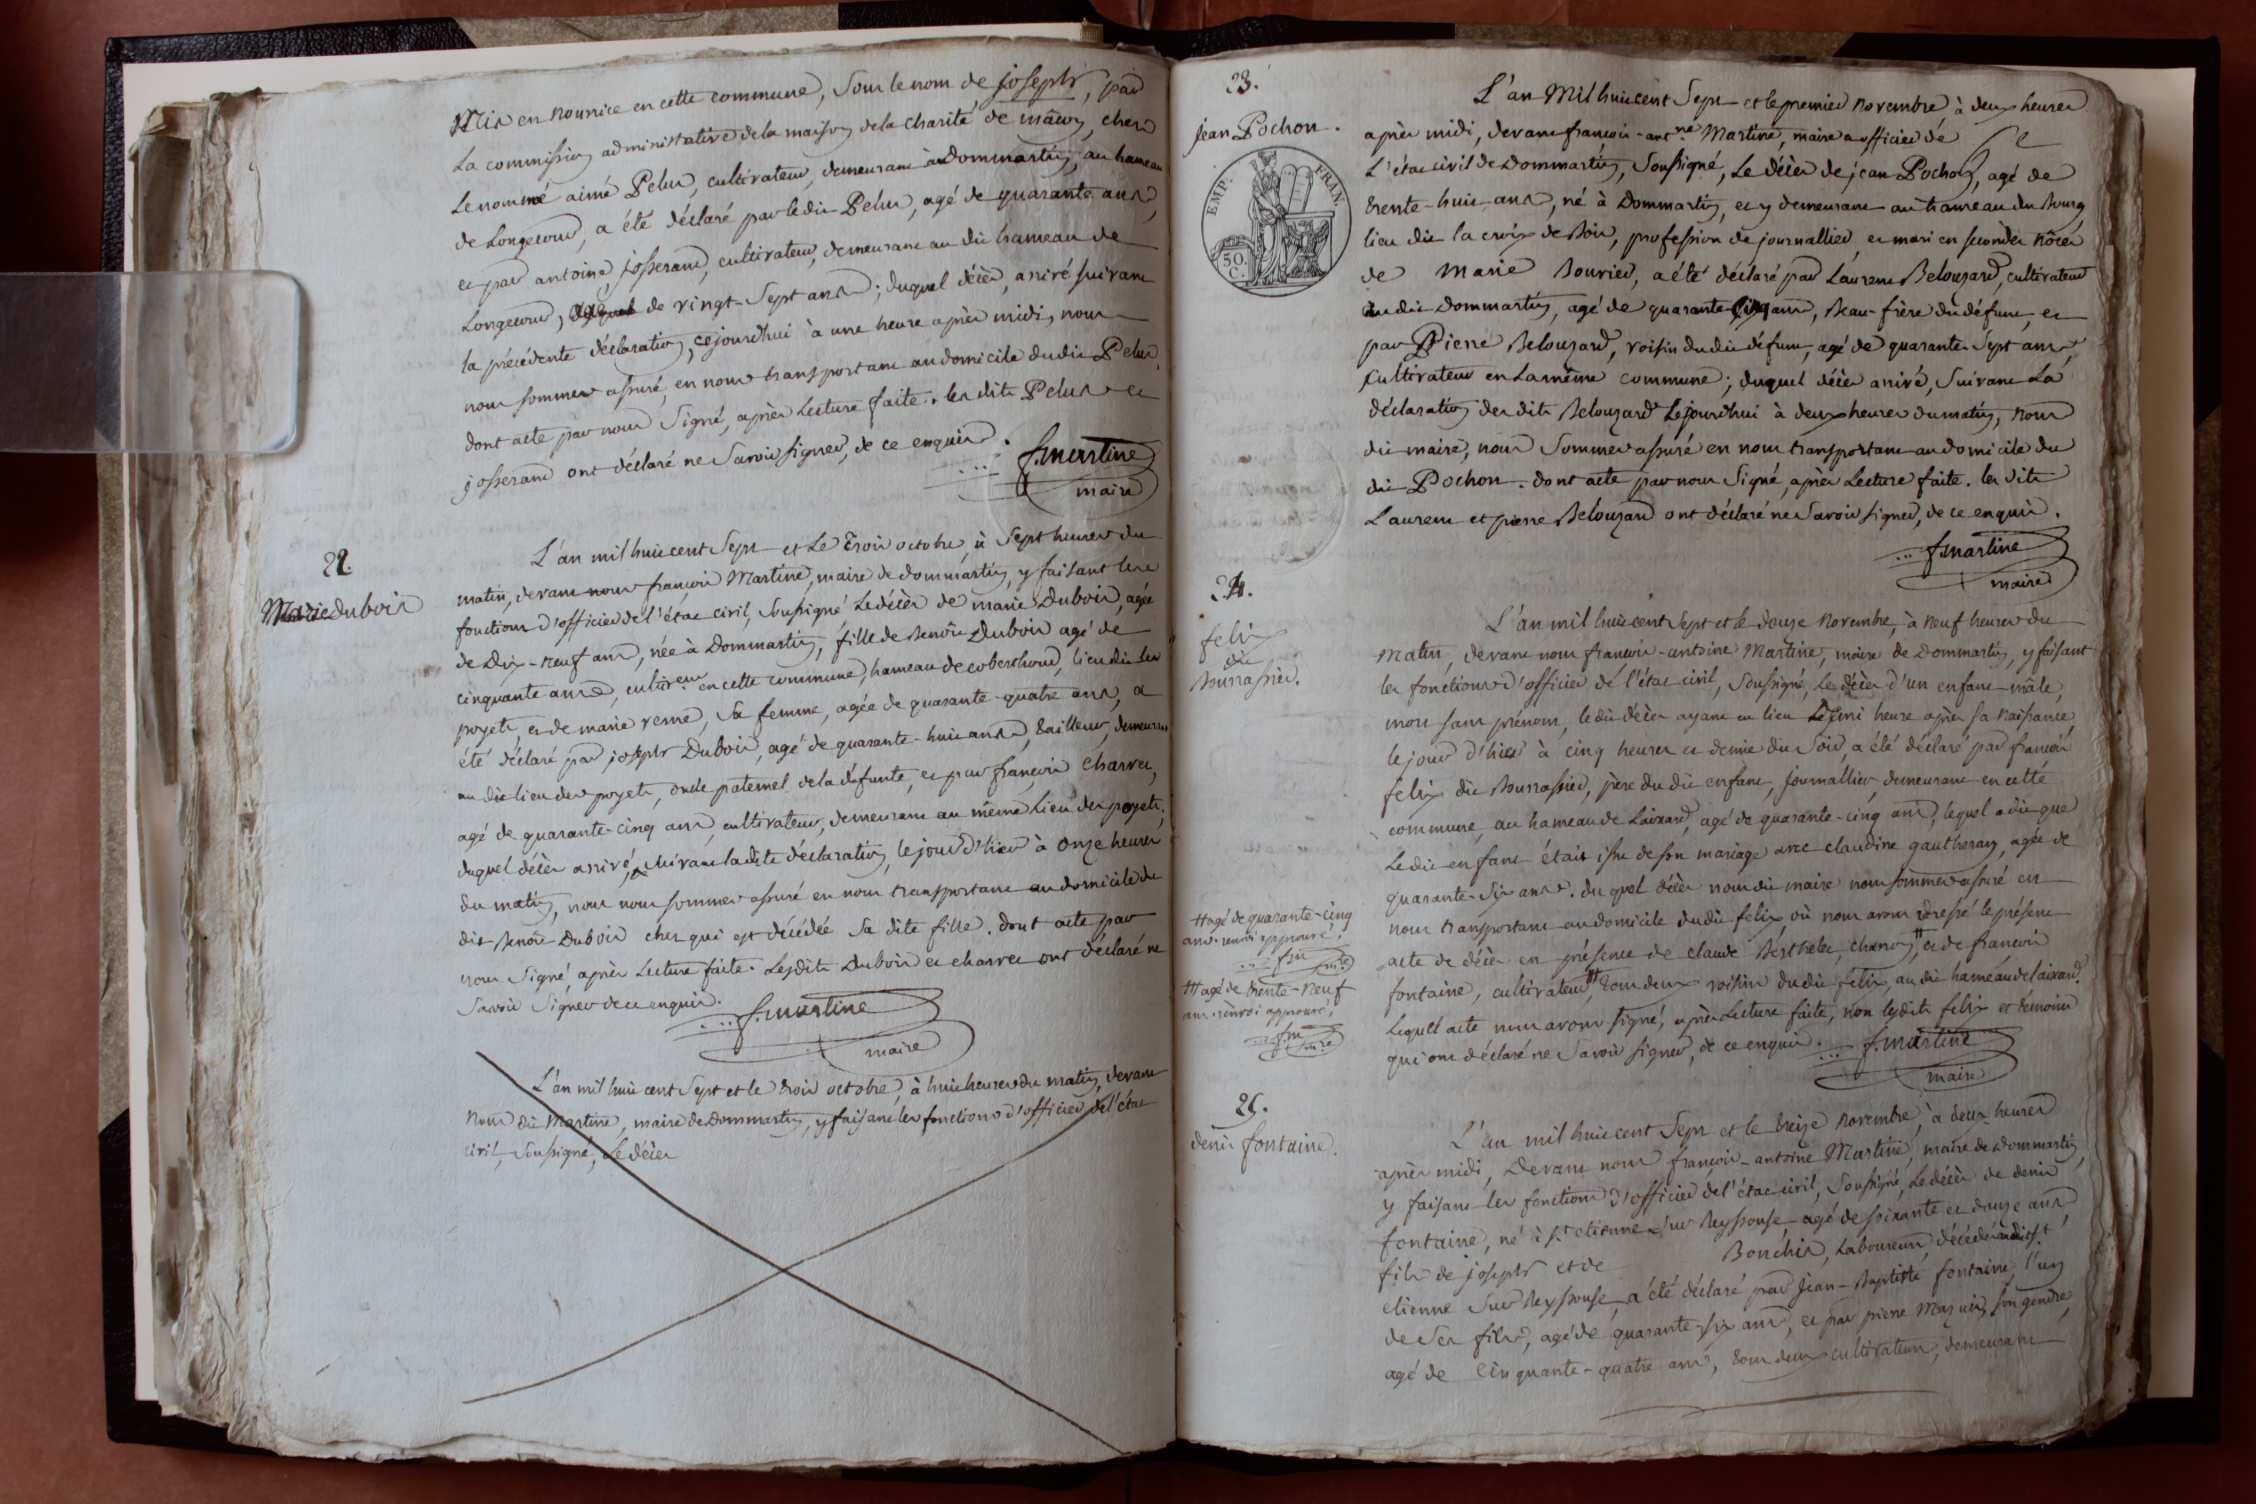 Mis en nourrice en cette commune, sous le nom de joseph, par
La commission administrative de la maison de la charité de mâcon, chez
Le nommé aimé Pelus, cultivateur, demeurant à Dommartin, au hameau
de Longecour, a été déclaré par le dit Pelus, agé de quarante ans,
et par antoine josserand, cultivateur, demeurant au dit hameau de
Longecour, de vingt-Sept ans; duquel décès, arivé suivant
la précédente déclaration, cejourd'hui à une heure après midi, nous
nous sommes assuré, en nous transportant au domicile du dit Pelus,
dont acte par nous Signé, après Lecture faite. les dits Pelus et
josserand ont déclaré ne Savoir signer, de ce enquis.
f. martine
maire
22.
Marie dubois
L'an mil huit cent Sept et Le Trois octobre, à Sept heures du
matin, devant nous françois Martine, maire de dommartin, y faisant les
fonctions d'officier de l'état civil, Soussigné Le décès de marie Dubois, agée
de Dix-neuf ans, née à Dommartin, fille de Benoît Dubois agé de
cinquante ans, cultiv.eur en cette commune, hameau de coberthoud, lieu dit les
poyets, et de marie verne, Sa femme, agée de quarante-quatre ans, a
été déclaré par joseph Dubois, agé de quarante-huit ans, tailleur, demeurant
au dit lieu des poyets, oncle paternel de la défunte, et par françois Charvet,
agé de quarante-cinq ans, cultivateur, demeurant au même Lieu des poyets;
duquel décès arrivé, suivant la dite déclaration, le jour d'hier à onze heures
du matin, nous nous sommes assuré en nous transportant au domicile du
dit Benoît Dubois chez qui est décédée Sa dite fille. dont acte par
nous Signé, après Lecture faite. Lesdits Dubois et charvet ont déclaré ne
Savoir Signer de ce enquis.
f. martine
maire
L'an mil huit cent Sept et le trois octobre, à huit heures du matin, devant
Nous dit Martine, maire de Dommartin, y faisant les fonctions d'officier de l'état
civil, Soussigné, Le décès
23.
jean Pochon.
EMP. FRAN.
50. C.
L'an Mil huit cent Sept et le premier novembre à deux heures
après midi, devant françois-ant.ne Martine, maire et officier de
L'état civil de Dommartin, Soussigné, Le décès de jean Pochon, agé de
trente-huit ans, né à Dommartin, et y demeurant au hameau du Bourg
lieu dit la croix de Bois, profession de journallier et mari en secondes nôces
de Marie Bouvier, a été déclaré par Laurent Belouzard, cultivateur
au dit Dommartin, agé de quarante-cinq ans, Beau-frère du défunt, et
par Pierre Belouzard, voisin du dit défunt, agé de quarante-Sept ans,
Cultivateur en La même commune; duquel décès arrivé, Suivant La
déclaration des dits Belouzard cejourd'hui à deux heures du matin, nous
dit maire, nous Sommes assuré en nous transportant au domicile du
dit Pochon. dont acte par nous Signé, après Lecture faite. les dits
Laurent et pierre Belouzard ont déclaré ne Savoir signer, de ce enquis.
f. martine
maire
24.
felix
dit
Bourrassier.
L'an mil huit cent Sept et le douze Novembre, à neuf heures du
Matin, devant nous françois-antoine Martine, maire de Dommartin, y faisant
les fonctions d'officier de l'état civil, Soussigné, Le décès d'un enfant mâle,
mort sans prénom, le dit décès ayant eu lieu Demi heure après sa naissance,
le jour d'hier à cinq heures et demie du Soir, a été déclaré par françois
felix dit Bourrassier, père du dit enfant, journallier, demeurant en cette
commune, au hameau de Laixard, agé de quarante-cinq ans, lequel a dit que
Le dit enfant était issu de son mariage avec claudine gautheron, agée de
quarante-Six ans. du quel décès nous dit maire nous sommes assuré en
nous transportant au domicile du dit felix, où nous avons dressé le présent
acte de décès en présence de claude Berthelet, charron, # et de françois
fontaine, cultivateur, # tous deux voisins du dit felix, au dit hameau de laixard.
Lequel acte nous avons signé, après Lecture faite, non lesdits felix et témoins
qui ont déclaré ne Savoir signer, de ce enquis.
f. martine
maire
# agé de quarante-cinq
ans. renvoi approuvé
f m
m.re
# agé de trente-neuf
ans. renvoi approuvé
f m
m.re
25.
denis fontaine.
L'an mil huit cent Sept et le treize novembre, à deux heures
après midi, Devant nous françois-antoine Martine, maire de Dommartin,
y faisant les fonctions d'officier de l'état civil, Soussigné, Le décès de denis
fontaine, né à S.t etienne Sur Reyssouse agé de soixante et douze ans
fils de joseph et de Bouchis, Laboureurs décédés audit S.t
etienne Sur Reyssouse, a été déclaré par Jean-Baptiste fontaine, l'un
de Ses fils, agé de quarante-six ans, et par pierre Mazuir, Son gendre,
agé de Cinquante-quatre ans, tous deux cultivateurs, demeurant